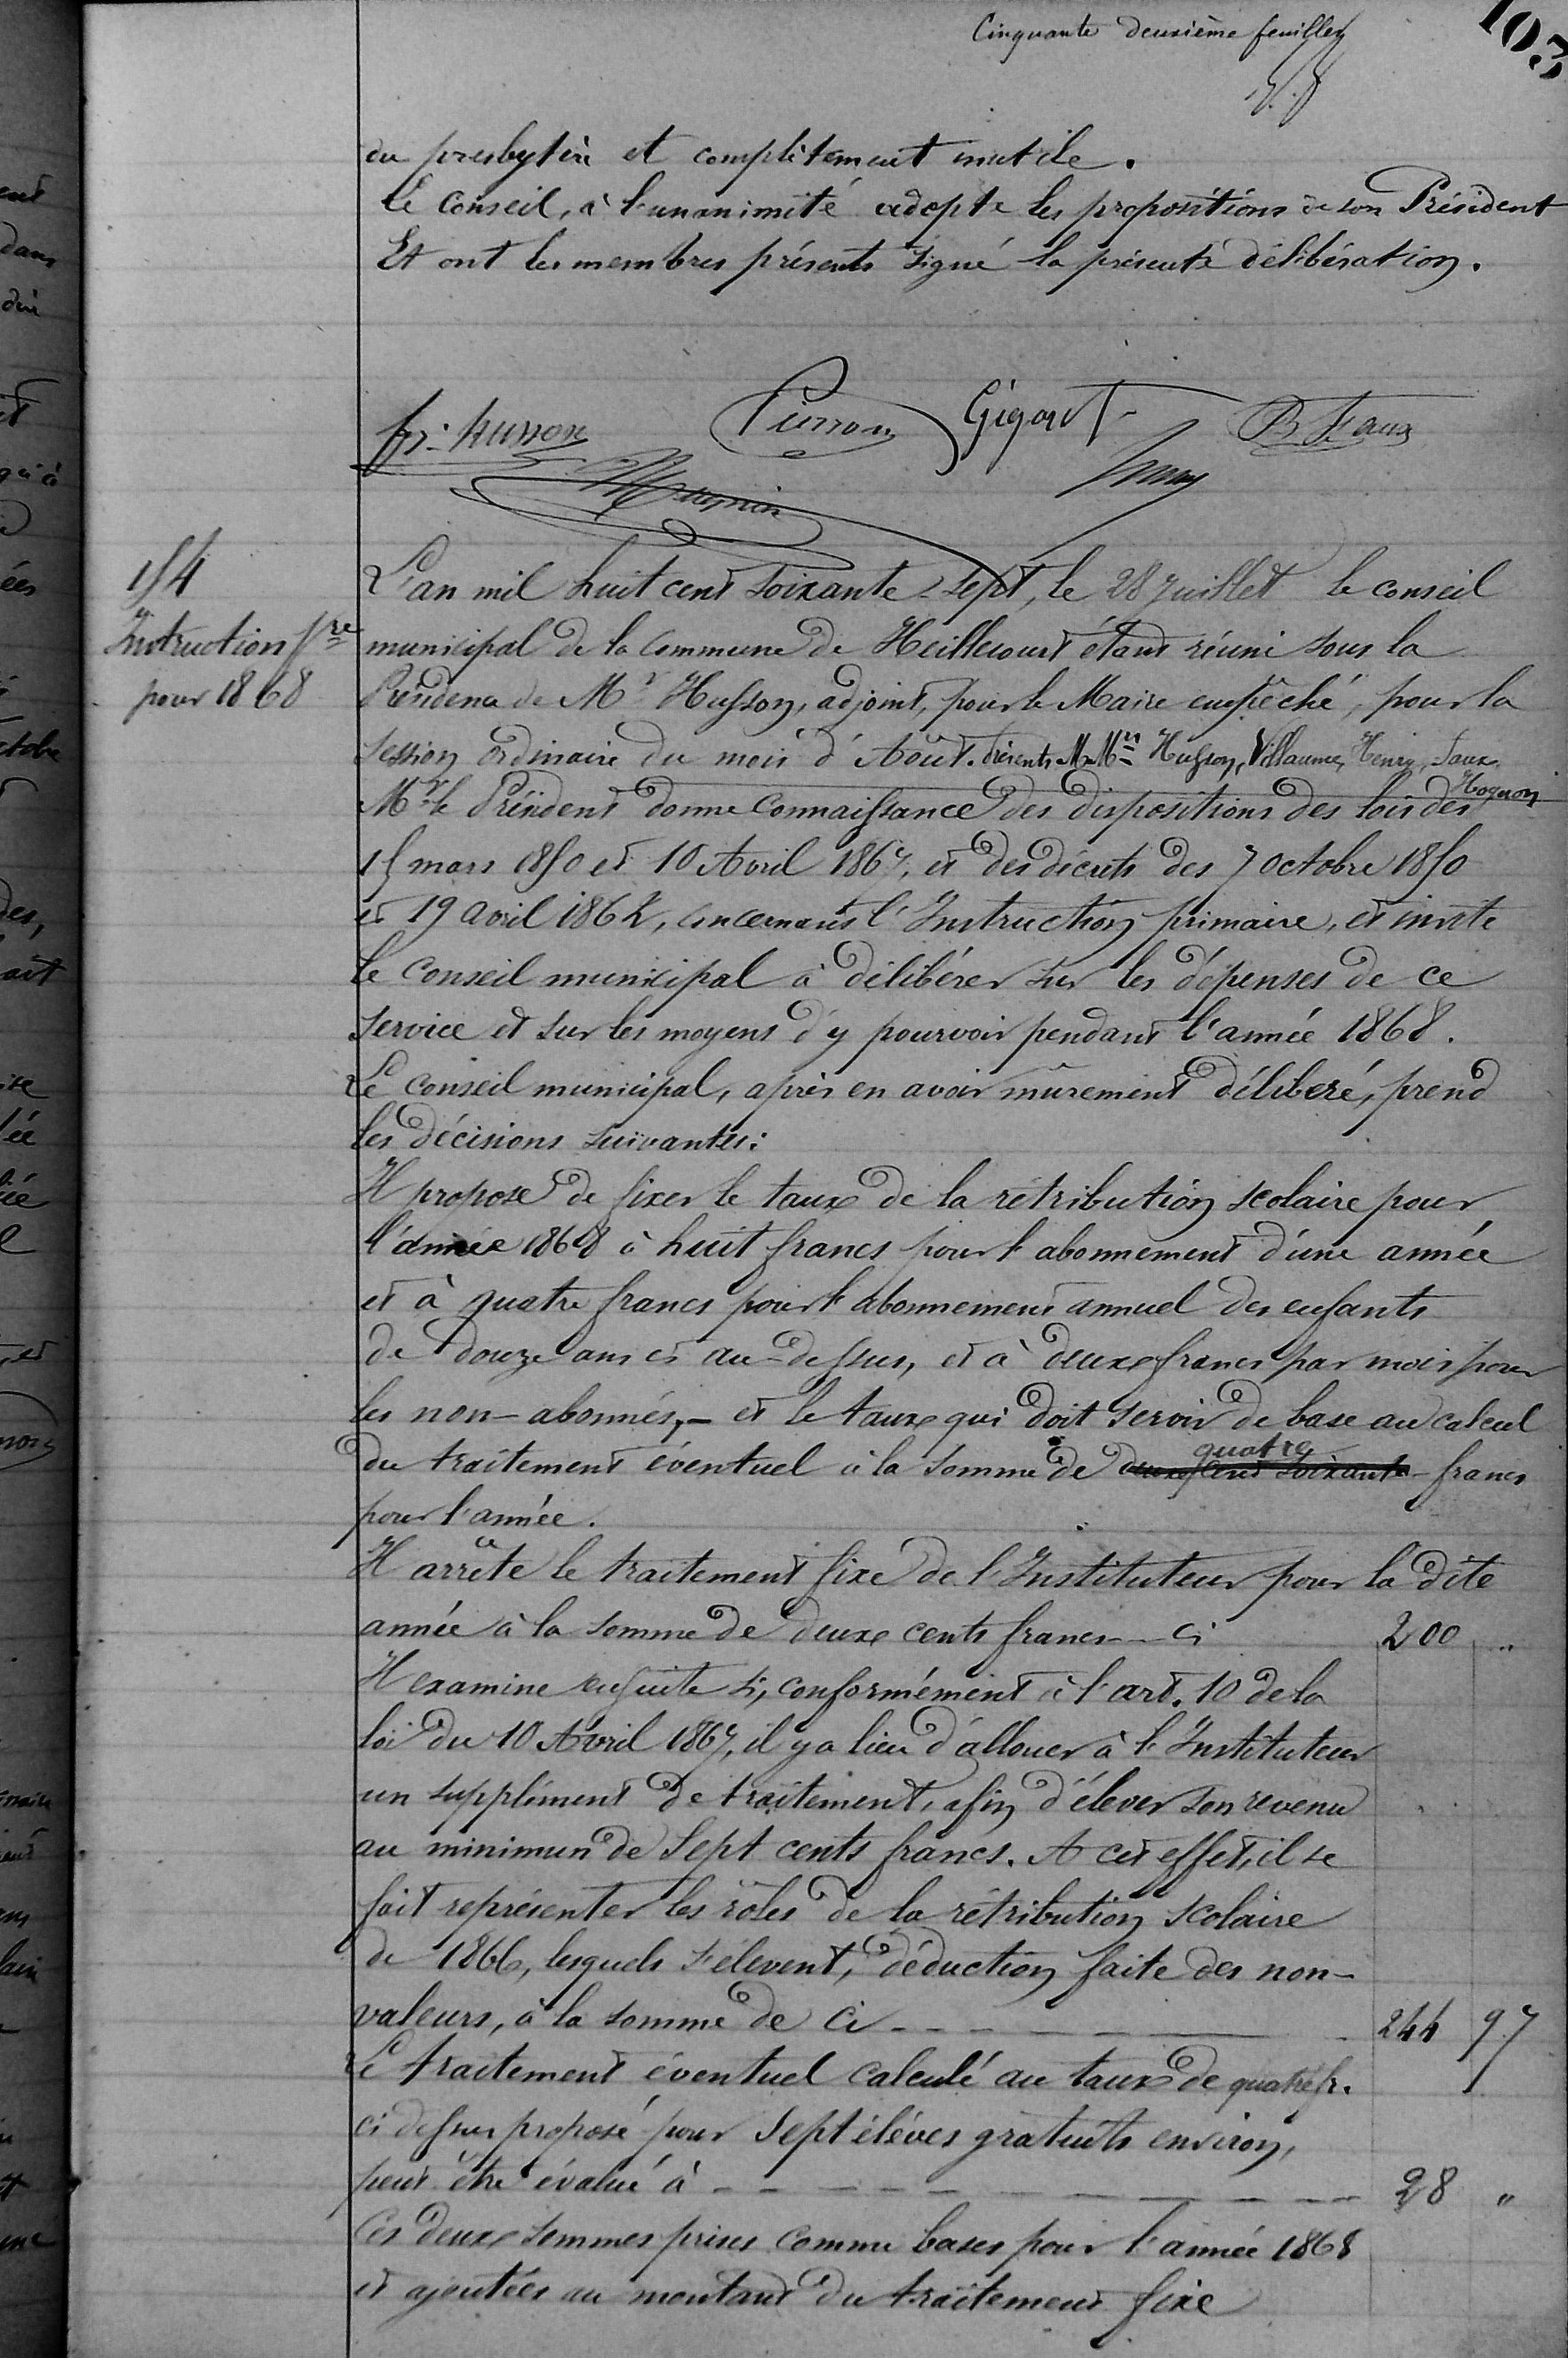 Cinquante deuxième feuillet
103
du presbytère et complètement inutile.
Le Conseil, à l'unanimité adopte les propositions de son Président
Et ont les membres présents signé la présente délibération.
fr. husson Pierron Gigout B Faux
154
Instruction pre
pour 1868
L'an mil huit cent soixante-sept, le 28 Juillet le conseil
municipal de la Commune de Heillecourt étant réuni sous la
Présidence de Mr Husson, adjoint, pour le Maire empêché, pour la
session ordinaire du mois d'Août. Présents M. Mrs Husson, Villaume, Henry, Faux
Mr le Président donne connaissance des dispositions des lois des
15 mars 1850 et 10 Avril 1867, et des décrets des 7 octobre 1850
et 19 avril 1862, concernant l'Instruction primaire, et invite
le Conseil municipal à délibérer sur les dépenses de ce
service et sur les moyens d'y pourvoir pendant l'année 1868.
Le Conseil municipal, après en avoir mûrement délibéré, prend
les décisions suivantes:
Il propose de fixer le taux de la rétribution scolaire pour
l'année 1868 à huit francs pour l'abonnement d'une année
et à quatre francs pour l'abonnement annuel des enfants
de douze ans et au-dessus, et à deux francs par mois pour
les non-abonnés, - et le taux qui doit servir de base au calcul
du traitement éventuel à la somme de deux cent soixante quatre francs
pour l'année.
Il arrête le traitement fixe de l'Instituteur pour la dite
année à la somme de deux cents francs - ci 200 "
Il examine ensuite si, conformément à l'art. 10 de la
loi du 10 Avril 1867, il y a lieu d'allouer à l'Instituteur
un supplément de traitement, afin d'élever son revenu
au minimun de Sept cents francs. A cet effet, il se
fait représenter les rôles de la rétribution scolaire
de 1866, lesquels s'élevent, déduction faite des non-
valeurs, à la somme de ci 244 97
Le traitement éventuel calculé au taux de quatre fr.
ci dessus proposé pour Sept élèves gratuits environ,
peut être évalué à 28 "
Ces deux sommes prises comme bases pour l'année 1868
et ajoutées au montant du traitement fixe